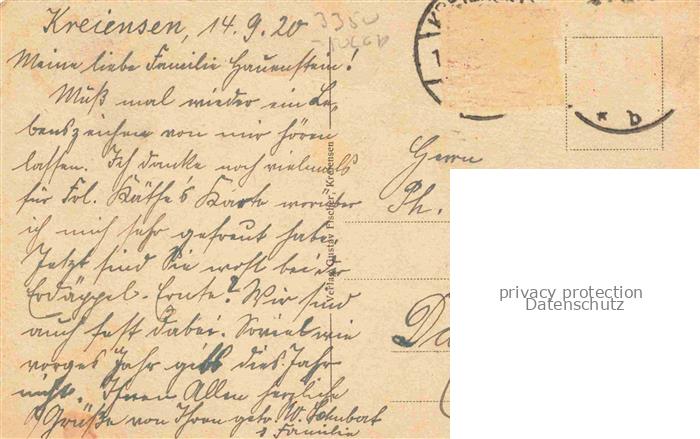 Kreiensen, 14.9.20
3350
Meine liebe Familie Hauenstein!
Muß mal wieder ein Le-
benszeichen von mir hören
lassen. Ich danke noch vielmals
für Frl. Käthe's Karte worüber
ich mich sehr gefreut habe.
Jetzt sind Sie wohl bei der
Erdäppel-Ernte? Wir sind
auch fest dabei. Soviel wie
voriges Jahr gibts dies Jahr
nicht. Ihnen Allen herzliche
Grüße von Ihren getr. W.
& Familie
Verlag Gustav Fischer, Kreiensen
* b
Herrn
Ph.
Da
privacy protection
Datenschutz